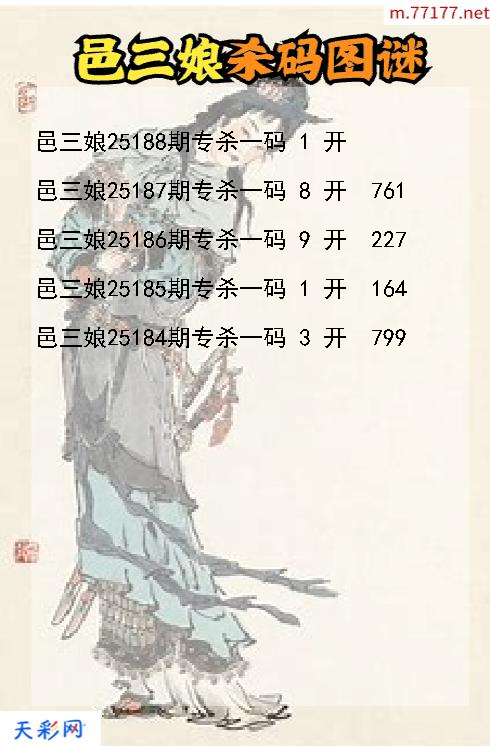 m.77177.net
邑三娘杀码图谜
邑三娘25188期专杀一码 1 开
邑三娘25187期专杀一码 8 开 761
邑三娘25186期专杀一码 9 开 227
邑三娘25185期专杀一码 1 开 164
邑三娘25184期专杀一码 3 开 799
天彩网